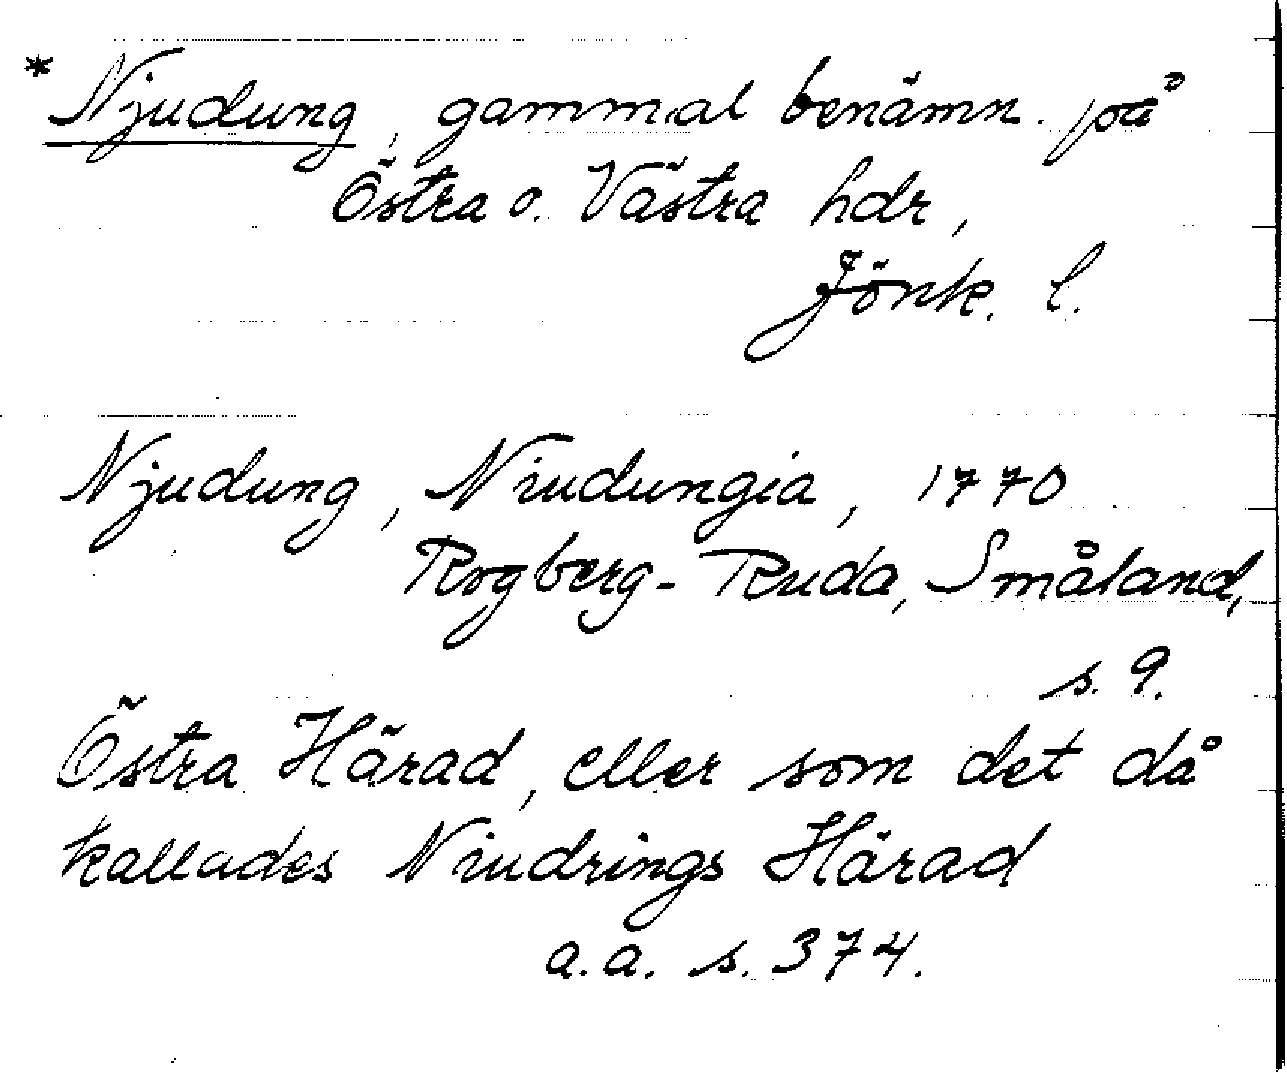 * Njudung, gammal benämn. på
Östra o. Västra hdr,
Jönk. l.
Njudung, Niudungia, 1770
Rogberg-Ruda, Småland,
s. 9.
Östra Härad, eller som det då
kallades Niudrings Härad
a.a. s. 374.